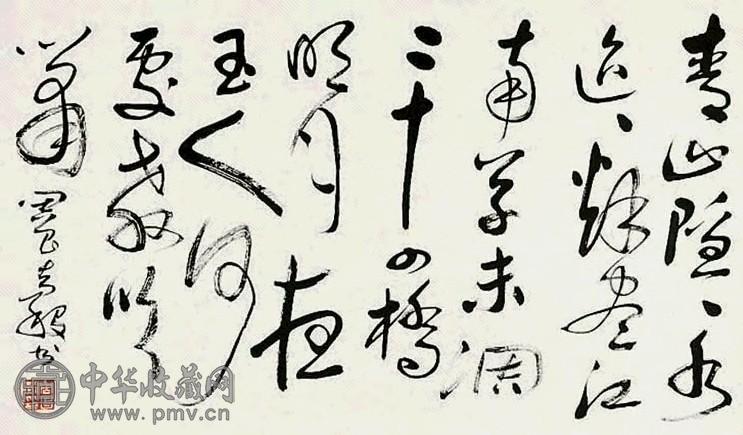 青山隱隱水
迢迢秋盡江
南草未凋
二十四橋
明月夜
玉人何
處教吹
簫
中华收藏网
www.pmv.cn